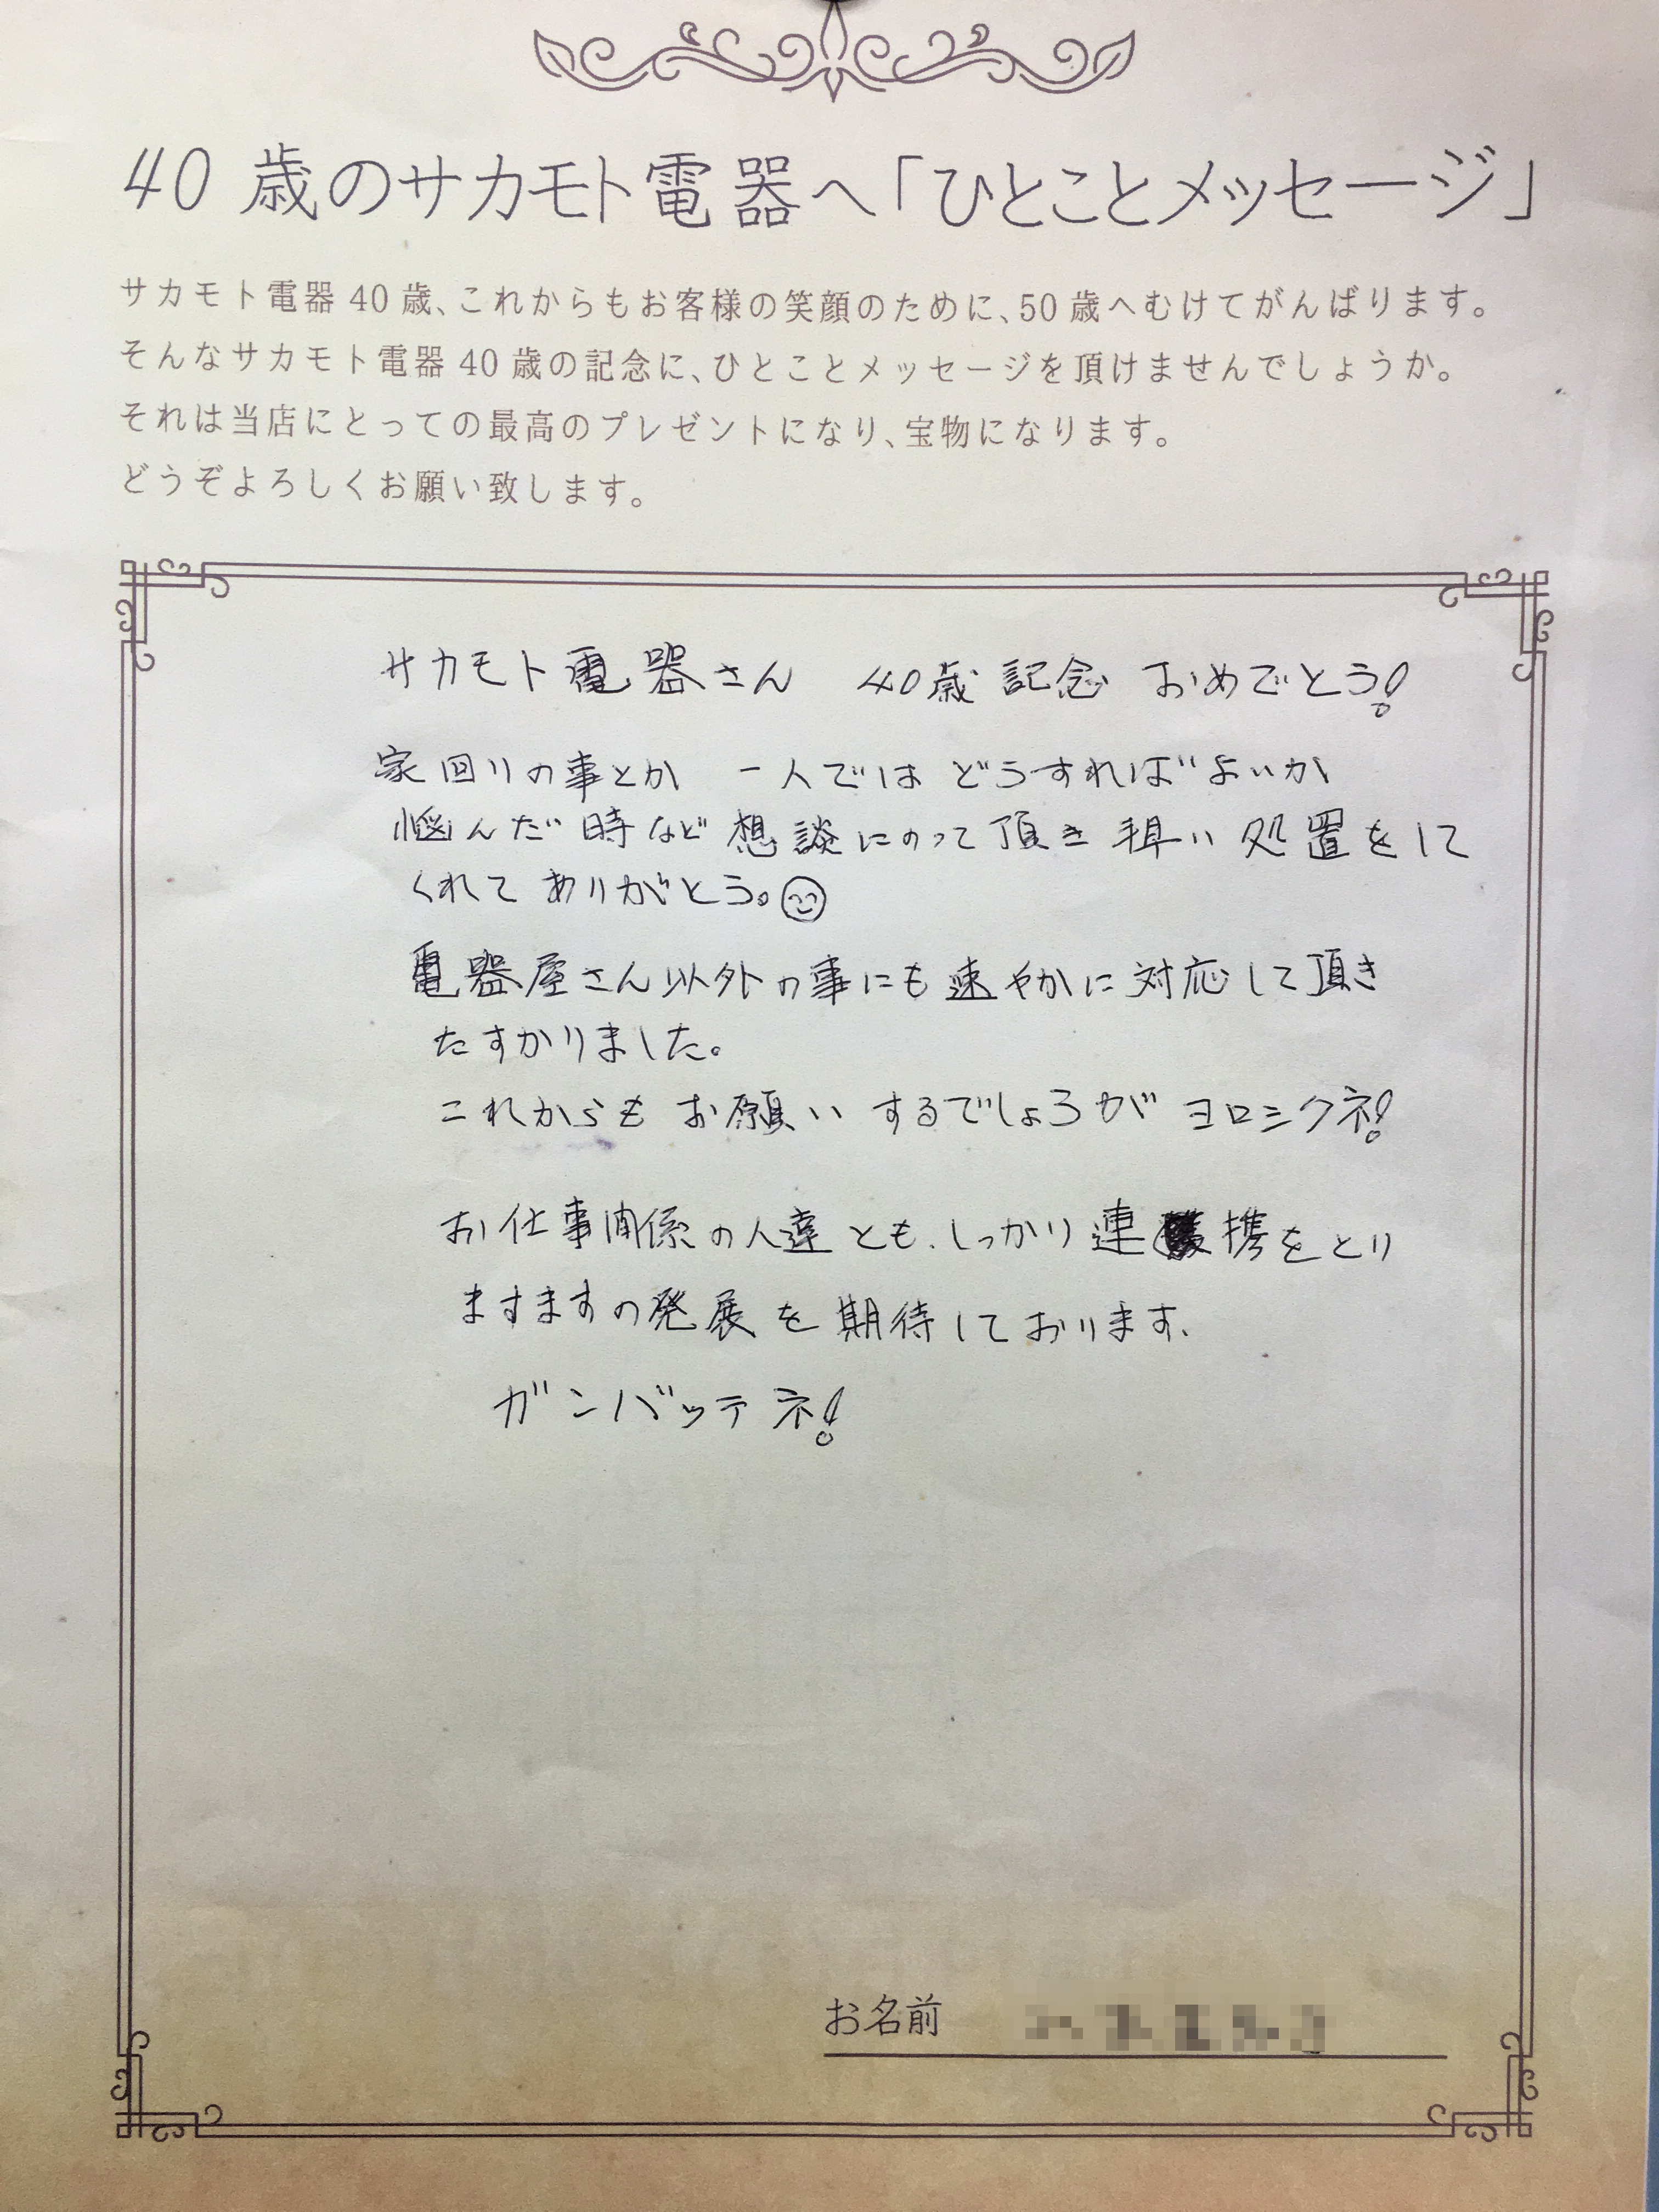 40歳のサカモト電器へ「ひとことメッセージ」
サカモト電器40歳、これからもお客様の笑顔のために、50歳へむけてがんばります。
そんなサカモト電器40歳の記念に、ひとことメッセージを頂けませんでしょうか。
それは当店にとっての最高のプレゼントになり、宝物になります。
どうぞよろしくお願い致します。
サカモト電器さん 40歳記念 おめでとう!
家回りの事とか 一人では どうすればよいか
悩んだ時など想談にのって頂き手早い処置をして
くれてありがとう。
電器屋さん以外の事にも速やかに対応して頂き
たすかりました。
これからもお願いするでしょろがヨロシクネ!
お仕事関係の人達とも、しっかり連携をとり
ますますの発展を期待しております、
ガンバッテネ!
お名前